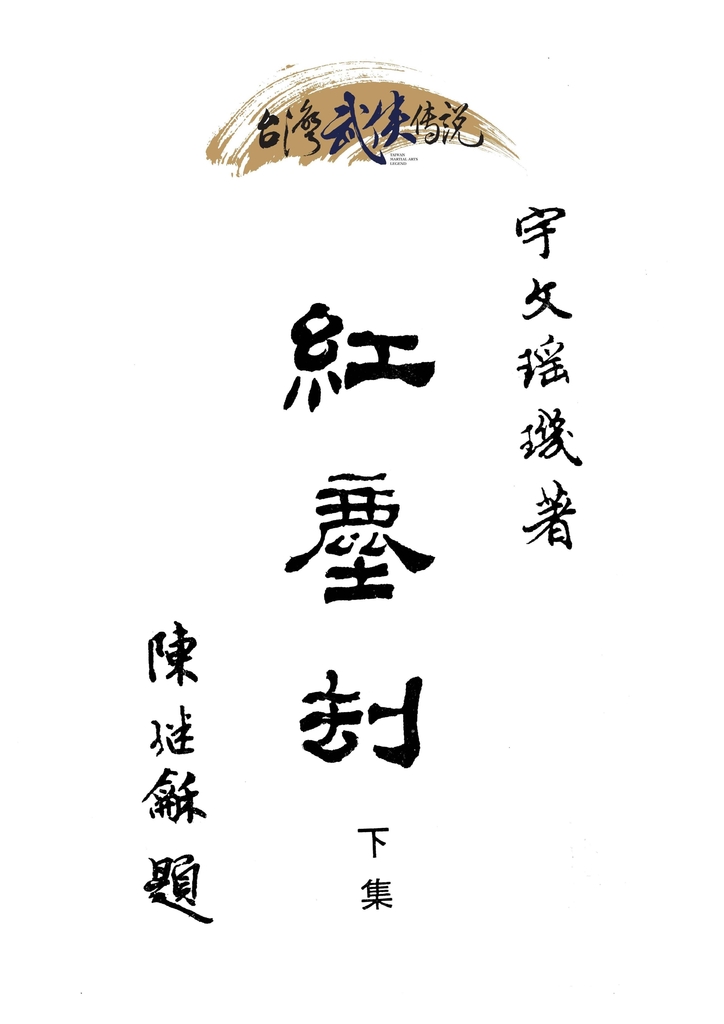 台灣武俠傳說
TAIWAN
MARTIAL ARTS
LEGEND
宇文瑶璣著
紅塵刦
下集
陳継龢題